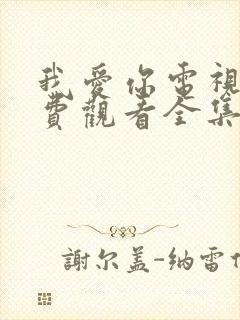 我愛你電視
費觀看全集
謝尔盖-纳雷